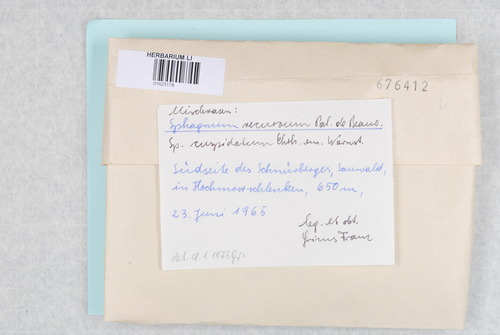 HERBARIUM LI
676412
Mischrasen:
Sphagnum recurvum Pal. de Beauv.
Sp. cuspidatum Ehrh. em. Warnst.
Südseite des Schnürberger, Sauwald,
in Hochmoorschlenken, 650 m,
23. Juni 1965
leg. et det.
Grims Franz